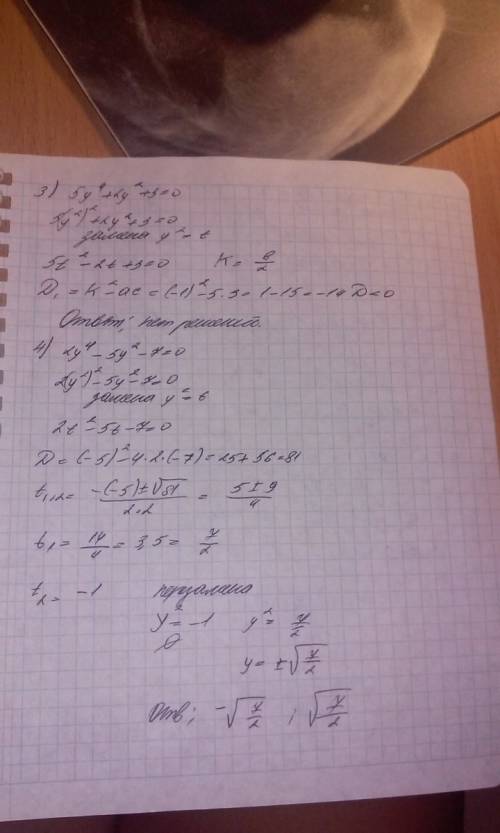 3) 5y⁴+2y²+3=0
5(y²)²+2y²+3=0
замена y²=t
5t²-2t+3=0 K=в/2
D₁=K²-ac=(-1)²-5·3=1-15=-14 D<0
Ответ; нет решений.
4) 2y⁴-5y²-7=0
2(y²)²-5y²-7=0
замена y²=t
2t²-5t-7=0
D=(-5)²-4·2·(-7)=25+56=81
t₁,₂=(-(-5)±√81)/(2·2)=(5±9)/4
t₁=14/4=3,5=7/2
t₂=-1
y²=-1 y²=7/2
∅
y=±√(7/2)
Отв; -√(7/2) ; √(7/2)